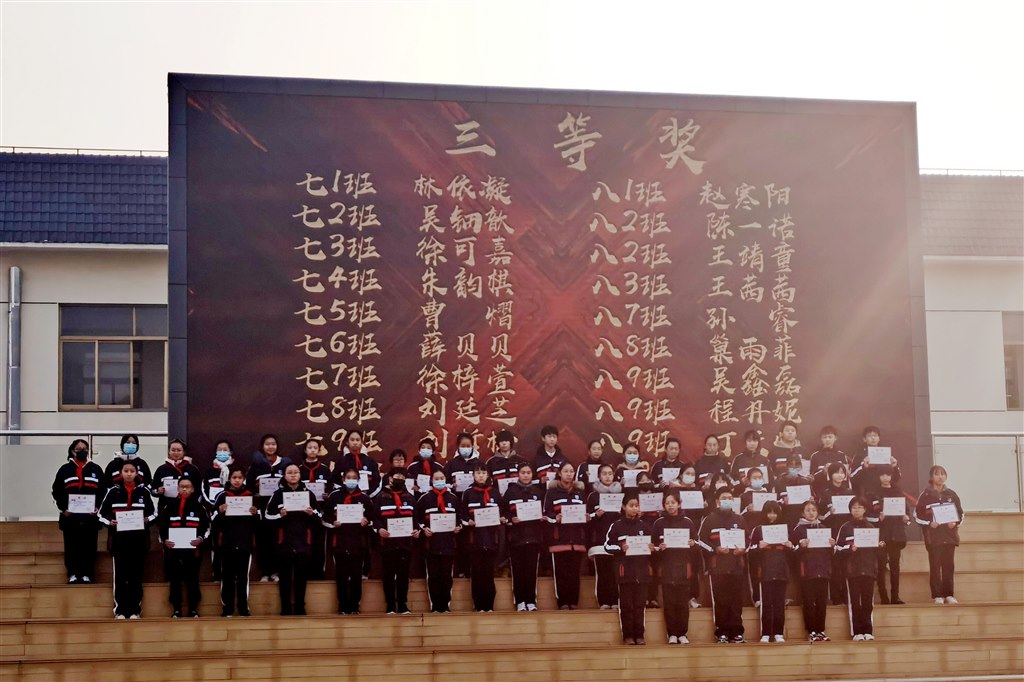 三等奖
七1班 林依凝 八1班 赵寒阳
七2班 吴钶歆 八2班 陈一诺
七3班 徐可嘉 八2班 王靖童
七4班 朱韵棋 八3班 王茜茜
七5班 曹熠 八7班 孙睿
七6班 薛贝贝 八8班 巢雨菲
七7班 徐梓萱 八9班 吴鑫磊
七8班 刘廷芝 八9班 程冉妮
七9班 八9班 丁